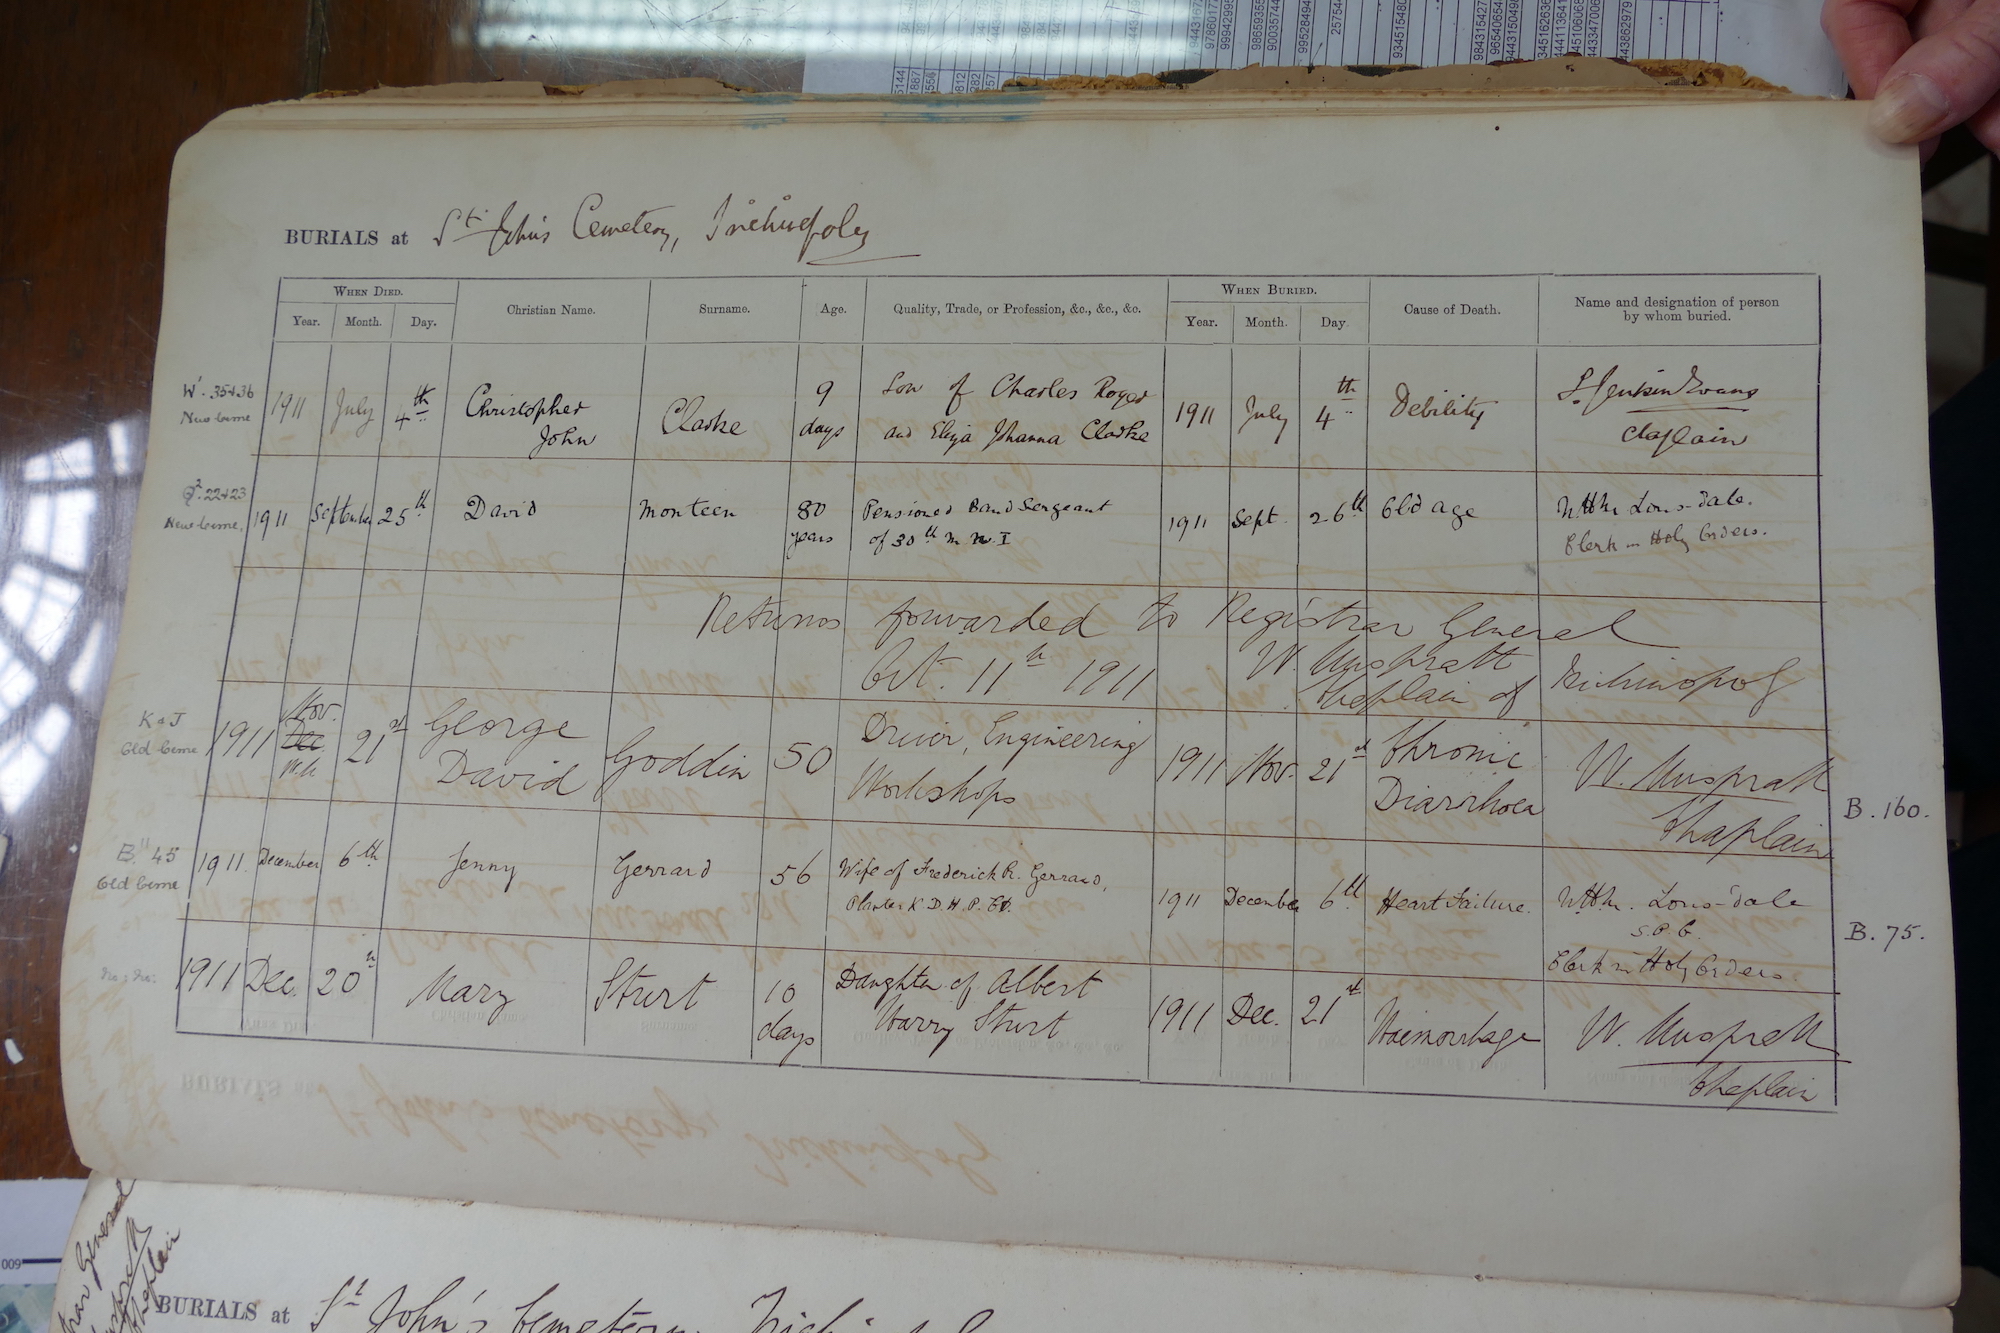 BURIALS at St. John's Cemetery, Trichinopoly
WHEN DIED. Christian Name. Surname. Age. Quality, Trade, or Profession, &c., &c., &c. WHEN BURIED. Cause of Death. Name and designation of person by whom buried.
Year. Month. Day. Year. Month. Day
W'. 35+36
New Ceme
1911 July 4th Christopher John Clarke 9 days Son of Charles Roger and Eliza Johanna Clarke 1911 July 4th Debility Jenkin Evans Chaplain
22+23
New Ceme.
1911 September 25th David Monteen 80 years Pensioned Band Sergeant of 30th M N. I 1911 Sept. 26th Old age Lons-dale. Clerk in Holy Orders.
Returns forwarded to Registrar General
Oct. 11th 1911 W. Muspratt
Chaplain of Trichinopoly
K & J
Old Ceme
1911 Nov. Dec W.M 21st George David Goddin 50 Driver, Engineering Workshops 1911 Nov. 21st Chronic Diarrhoea W. Muspratt Chaplain
B. 160.
B." 45
Old Ceme
1911 December 6th Jenny Gerrard 56 Wife of Frederick R. Gerrard, Planter K. D. H. P. Co. 1911 December 6th Heart Failure. Lons-dale S.P.G. Clerk in Holy Orders.
B. 75.
1911 Dec. 20th Mary Sturt 10 days Daughter of Albert Harry Sturt 1911 Dec. 21st Haemorrhage W. Muspratt Chaplain
BURIALS at St John's Cemetery
General
Chaplain
009